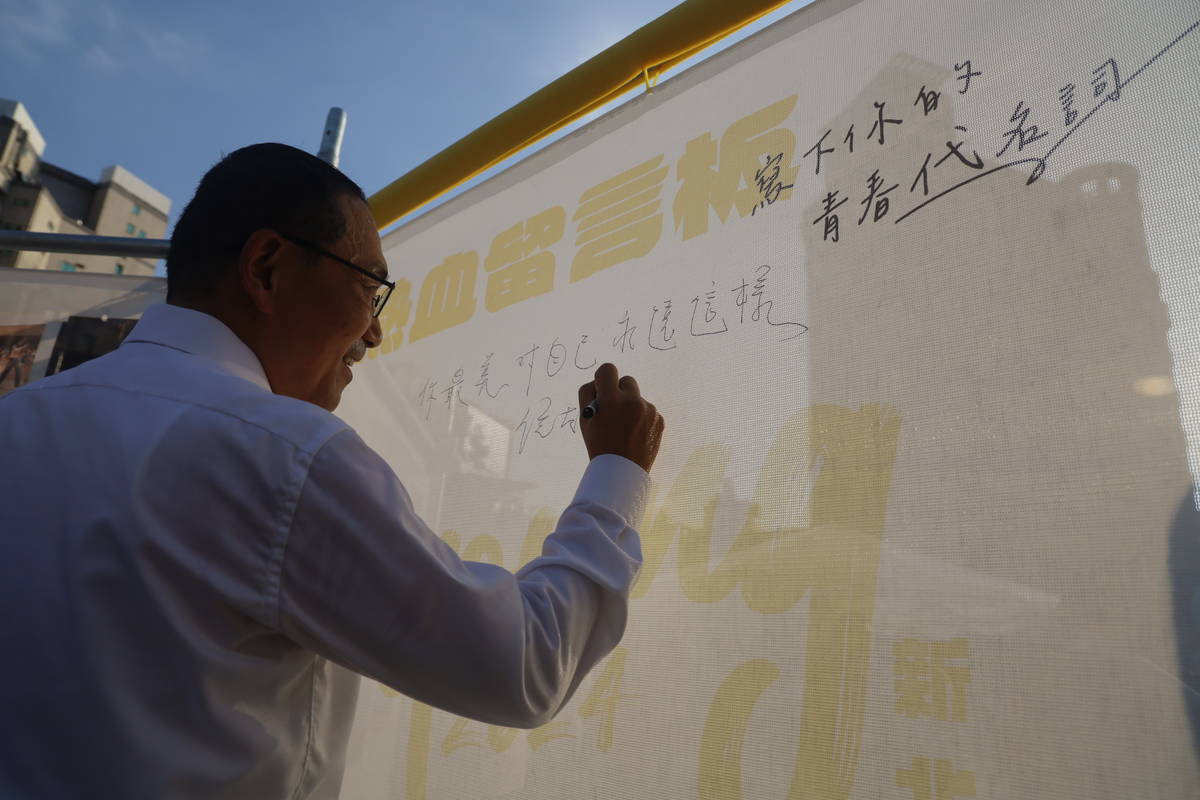 熱血留言板
寫下你的
青春代名詞
你最美 对自己永遠這樣
2024
新北